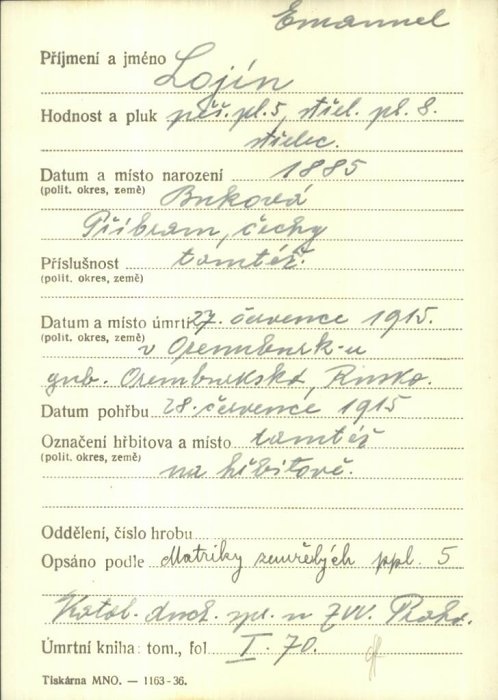 Emanuel
Příjmení a jméno Lojín
Hodnost a pluk pěš. pl. 5, střel. pl. 8.
střelec.
Datum a místo narození 1885
(polit. okres, země) Buková
Příbram, čechy
Příslušnost tamtéž.
(polit. okres, země)
Datum a místo úmrtí 27. července 1915.
(polit. okres, země) v Orenburk-u
gub. Orenburkská, Rusko.
Datum pohřbu 28. července 1915
Označení hřbitova a místo tamtéž
(polit. okres, země)
na hřbitově.
Oddělení, číslo hrobu
Opsáno podle Matriky zemřelých ppl. 5
Katol. duch. spr. u ZVV. Praha.
Úmrtní kniha: tom., fol. I. 70.
Tiskárna MNO. — 1163-36.